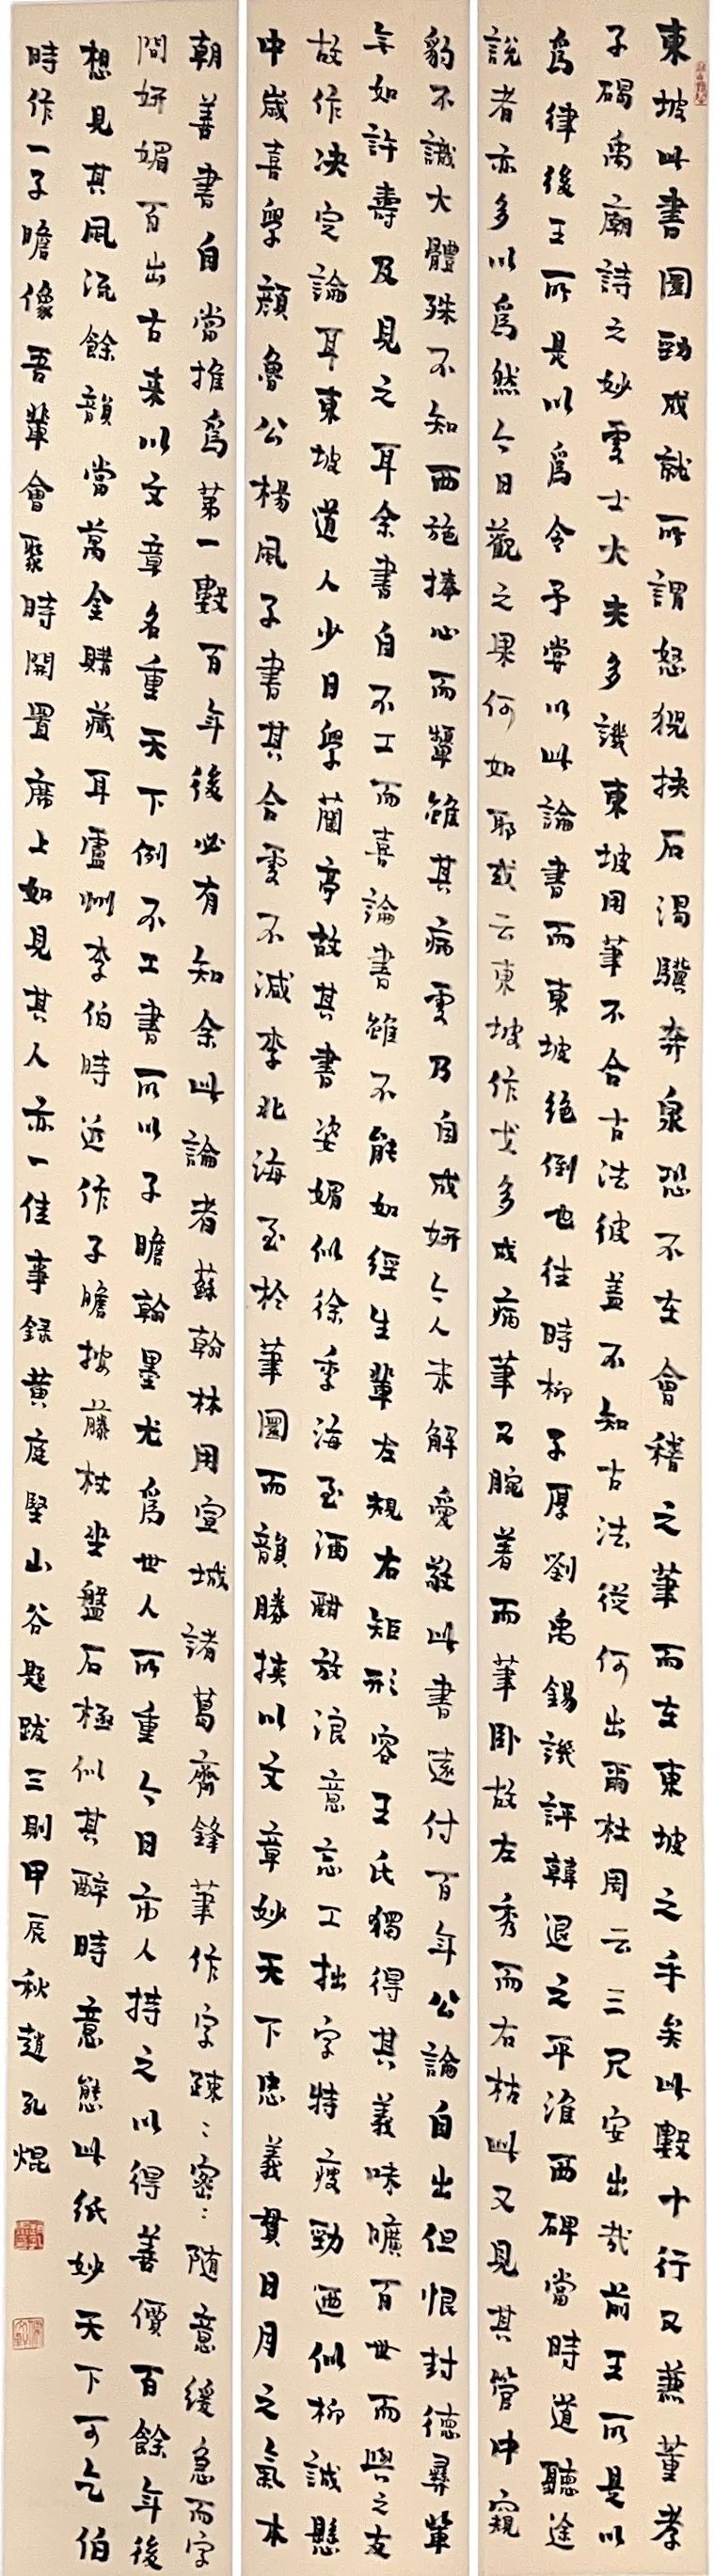 東坡此書圓勁成就所謂怒猊抉石渴驥奔泉恐不在會稽之筆而在東坡之手矣此數十行又兼董孝
子碣禹廟詩之妙處士大夫多譏東坡用筆不合古法彼蓋不知古法從何出爾杜周云三尺安出哉前王所是以
為律後王所是以為令予嘗以此論書而東坡絕倒也往時柳子厚劉禹錫譏評韓退之平淮西碑當時道聽途
說者亦多以為然今日觀之果何如耶或云東坡作戈多成病筆又腕著而筆卧故左秀而右枯此又見其管中窺
豹不識大體殊不知西施捧心而顰雖其病處乃自成妍今人未解愛敬此書遠付百年公論自出但恨封德彝輩
無如許壽及見之耳余書自不工而喜論書雖不能如經生輩左規右矩形容王氏獨得其義味曠百世而與之友
故作決定論耳東坡道人少日學蘭亭故其書姿媚似徐季海至酒酣放浪意忘工拙字特瘦勁迺似柳誠懸
中歲喜學顏魯公楊風子書其合處不減李北海至於筆圓而韻勝挾以文章妙天下忠義貫日月之氣本
朝善書自當推為第一數百年後必有知余此論者蘇翰林用宣城諸葛齊鋒筆作字疎〻密〻隨意緩急而字
間妍媚百出古來以文章名重天下例不工書所以子瞻翰墨尤為世人所重今日市人持之以得善價百餘年後
想見其風流餘韻當萬金購藏耳廬州李伯時近作子瞻按藤杖坐盤石極似其醉時意態此紙妙天下可乞伯
時作一子瞻像吾輩會聚時開置席上如見其人亦一佳事錄黃庭堅山谷題跋三則甲辰秋趙孔焜